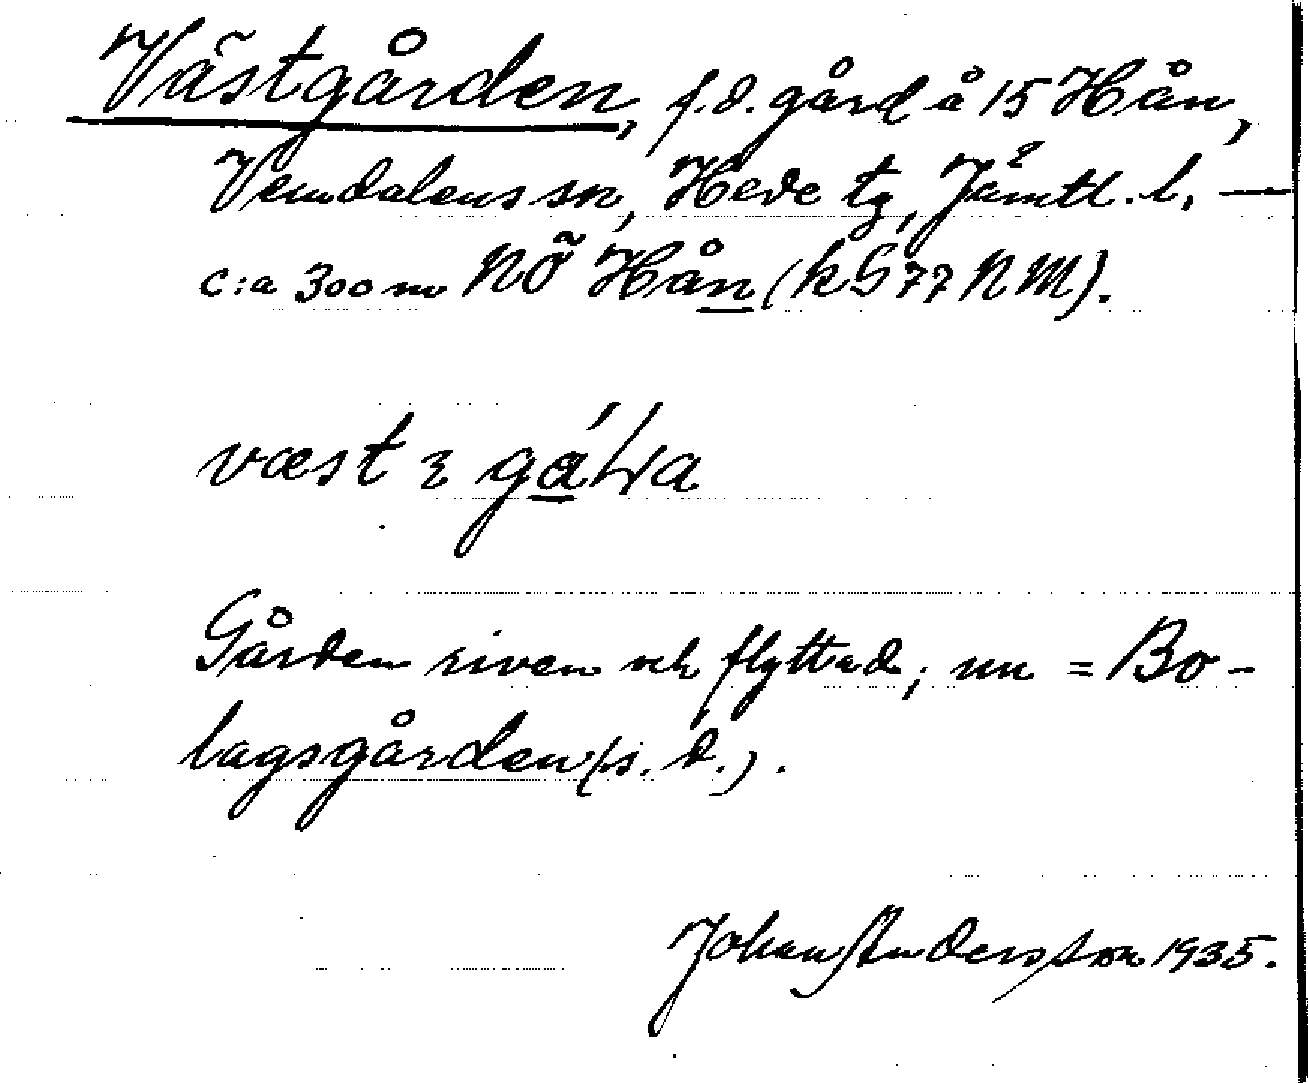 Västgården, f.d. gård å 15 Hån,
Vemdalens sn, Hede tg, Jämtl. l. —
c:a 300 m NÖ Hån (k S 77 NM).
væst
Gården riven och flyttad; nu = Bo-
lagsgården (s. d.).
Johan Andersson 1935.